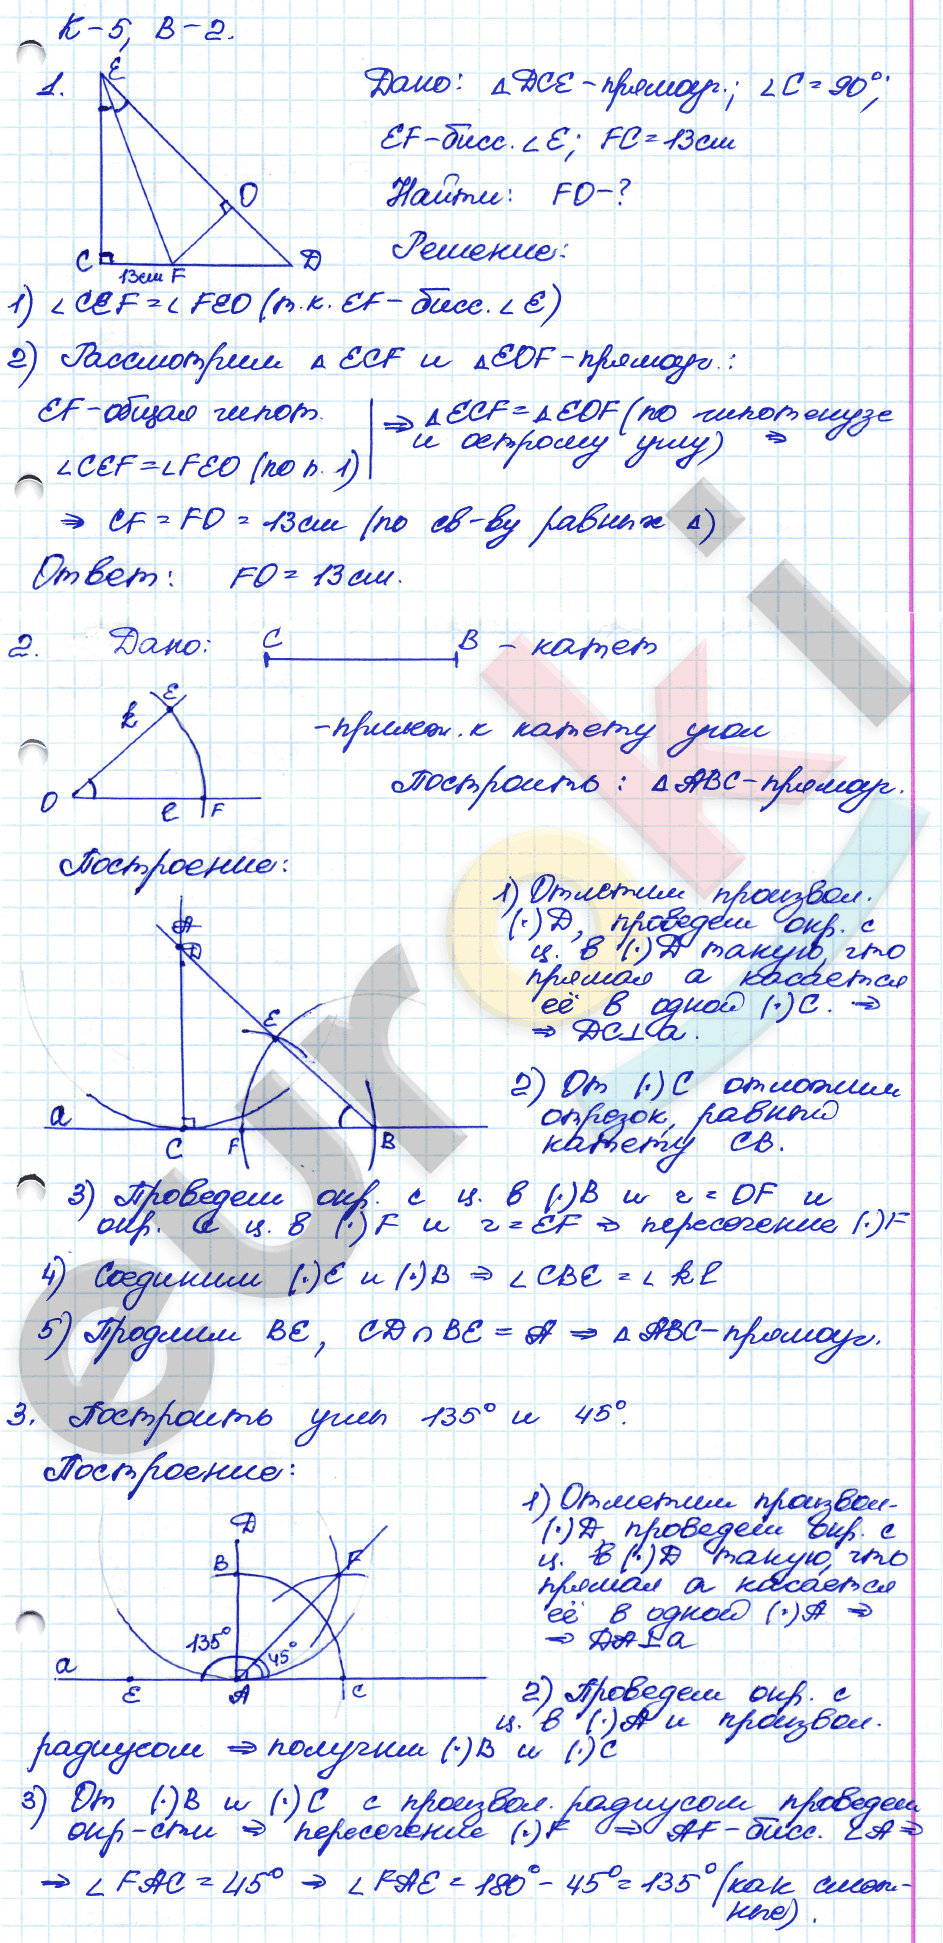 К-5, В-2.
1.
E
O
C
13см F
D
Дано: △DCE-прямоуг.; ∠C=90°;
EF-бисс. ∠E; FC=13см
Найти: FO-?
Решение:
1) ∠CEF=∠FEO (т.к. EF- бисс. ∠E)
2) Рассмотрим △ECF и △EOF-прямоуг.:
EF-общая гипот.
∠CEF=∠FEO (по п. 1)
⇒ △ECF=△EOF (по гипотенузе
и острому углу) ⇒
⇒ CF = FO = 13см (по св-ву равных △)
Ответ: FO = 13см.
2. Дано: C B - катет
E
k
O
l F
-прилеж. к катету угол
Построить: △ABC-прямоуг.
Построение:
A
D
E
a
C F B
1) Отметим произвол.
(·)D, проведем окр. с
ц. в (·)D такую, что
прямая a касается
её в одной (·)C. ⇒
⇒ DC⊥a.
2) От (·)C отложим
отрезок, равный
катету CB.
3) Проведем окр. с ц. в (·)B и r=OF и
окр. с ц. в (·)F и r=EF ⇒ пересечение (·)F
4) Соединим (·)E и (·)B ⇒ ∠CBE = ∠kl
5) Продлим BE, CD∩BE = A ⇒ △ABC-прямоуг.
3. Построить углы 135° и 45°.
Построение:
D
B F
135° 45°
a
E A C
1) Отметим произвол-
(·)D, проведем окр. с
ц. в (·)D такую, что
прямая a касается
её в одной (·)A ⇒
⇒ DA⊥a
2) Проведем окр. с
ц. в (·)A и произвол.
радиусом ⇒ получим (·)B и (·)C
3) От (·)B и (·)C с произвол. радиусом проведем
окр-сти ⇒ пересечение (·)F ⇒ AF-бисс. ∠A ⇒
⇒ ∠FAC = 45° ⇒ ∠FAE = 180° - 45° = 135° (как смеж-
ные).
euroki